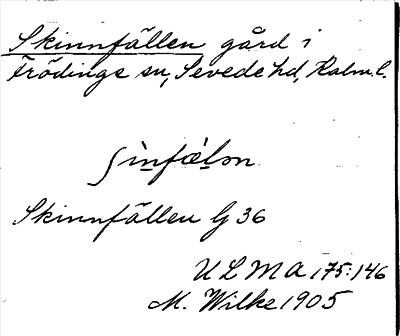 Skinnfällen gård i
Frödinge sn, Sevede hd, Kalm. l.
ʃìnfæ̀lən
Skinnfällen G 36
ULMA 175:146
M. Wilke 1905